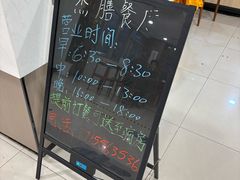 膳餐厅
营业时间:
早:6:30-8:30
中:10:00-13:00
晚:16:00-18:00
提前打餐可送至病房